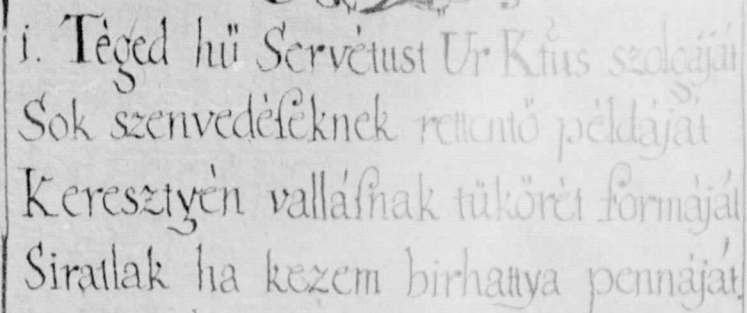 i. Téged hű Servétust Ur Ktus szolgáját
Sok szenvedéſéknek rettentö példáját
Keresztyén valláſnak tükörét formáját
Siratlak ha kezem birhattya pennáját.